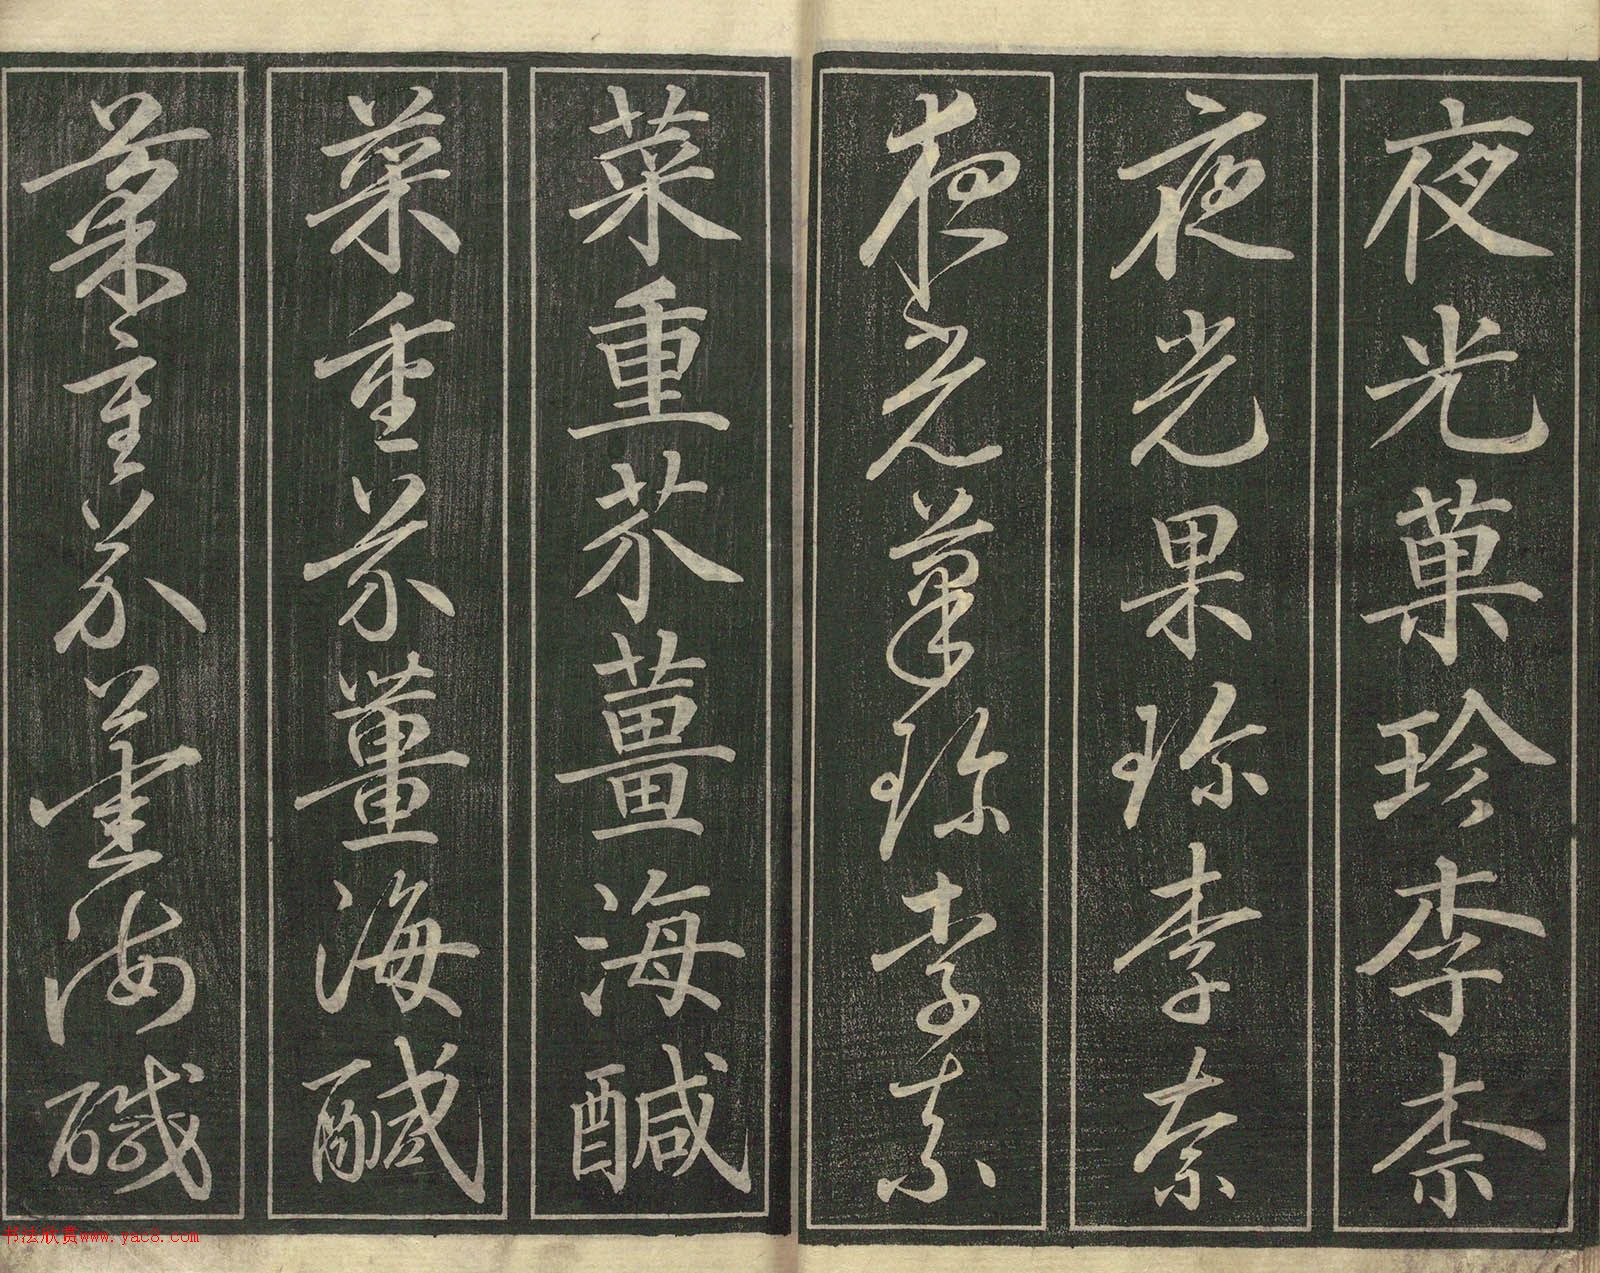 夜光菓珍李柰
夜光果珍李柰
夜光菓珍李柰
菜重芥薑海醎
菜重芥薑海醎
菜重芥薑海醎
书法欣赏www.yac8.com